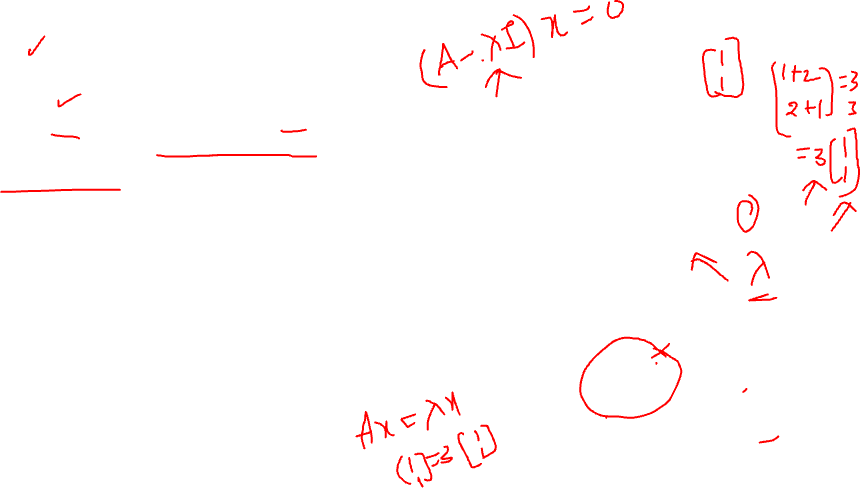 (A-λI)x=0
[1
1] [1+2
2+1] =3
3
=3[1
1]
0
λ
Ax=λx
(1
1]=3[1
1]